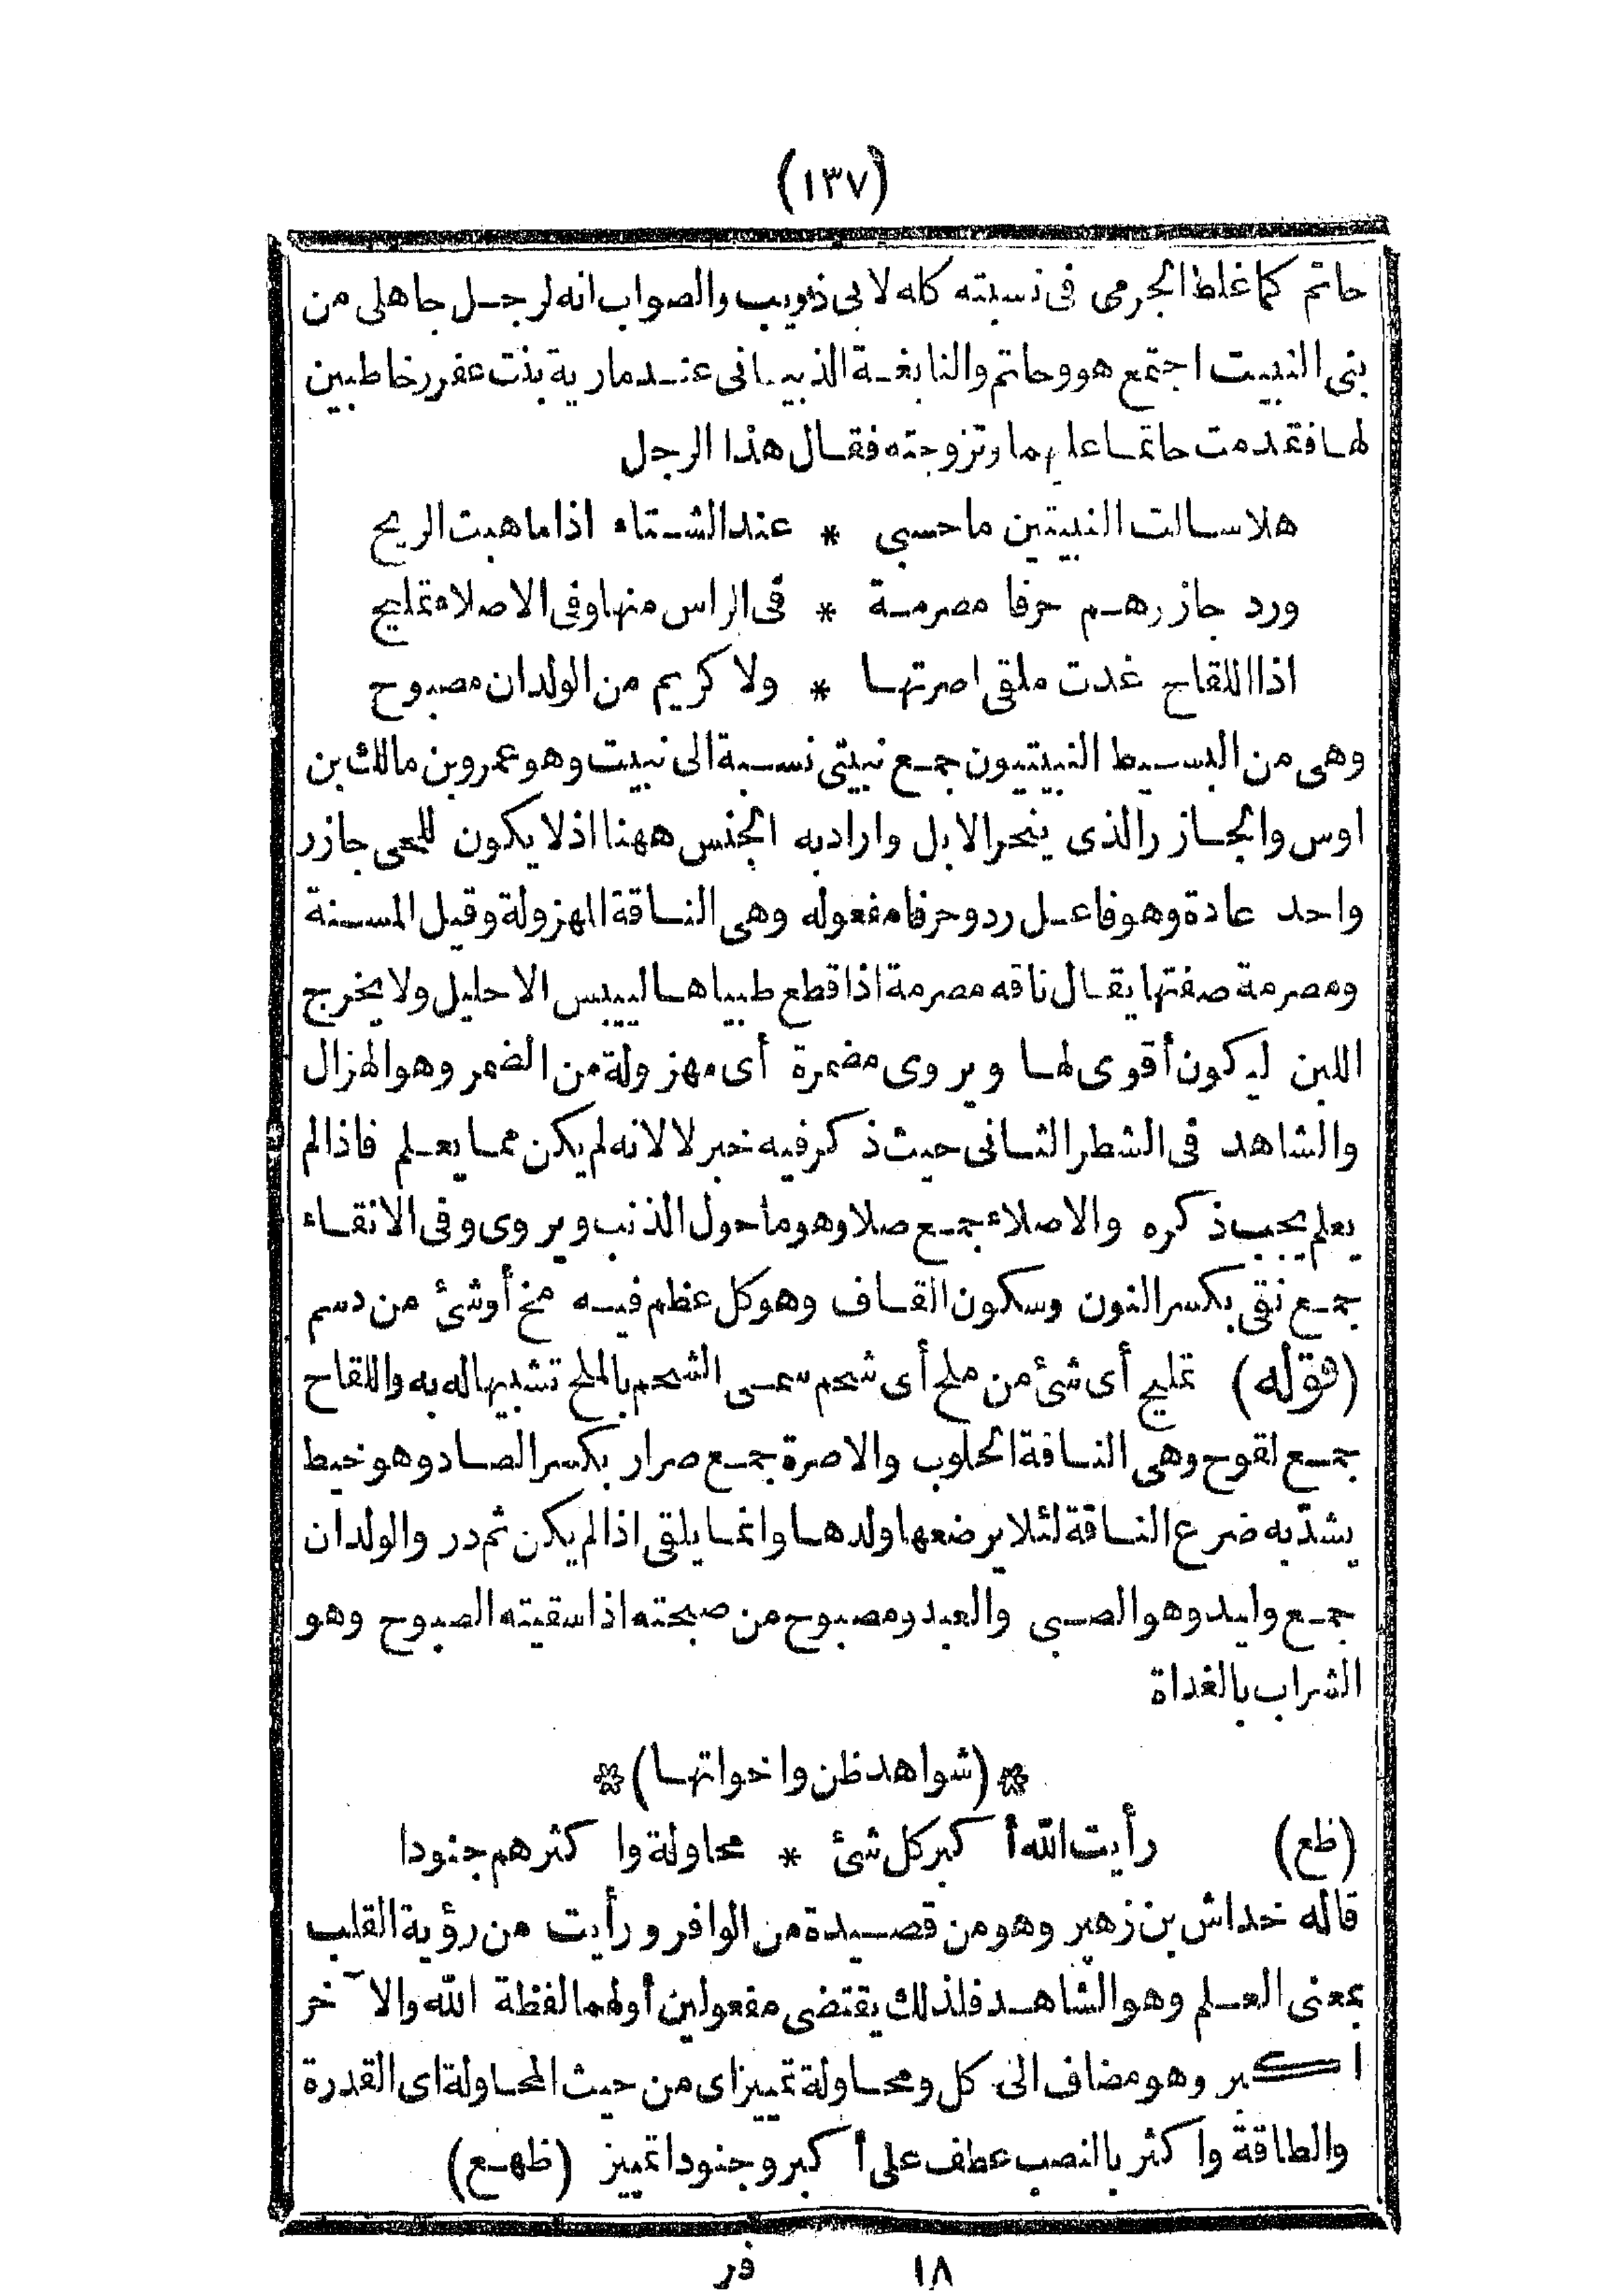 (١٣٧)
حاتم كما غلط الجرمى فى نسبته كله لابى ذويب والصواب انه لرجل جاهلى من
بنى النبيت اجتمع هو وحاتم والنابغة الذبيانى عند مارية بنت عفزر خاطبين
لها فقدمت حاتما عليهما وتزوجته فقال هذا الرجل
هلا سالت النبيتين ما حسبي * عند الشتاء اذا ما هبت الريح
ورد جازرهم حرفا مصرمة * فى الراس منها وفى الاصلاء تمليح
اذا اللقاح غدت ملقى اصرتها * ولا كريم من الولدان مصبوح
وهى من البسيط النبيتيون جمع نبيتى نسبة الى نبيت وهو عمرو بن مالك بن
اوس والجازر الذى ينحر الابل واراد به الجنس ههنا اذ لا يكون للحى جازر
واحد عادة وهو فاعل رد وحرفا مفعوله وهى الناقة المهزولة وقيل المسنة
ومصرمة صفتها يقال ناقه مصرمة اذا قطع طبياها لييبس الاحليل ولا يخرج
اللبن ليكون أقوى لها ويروى مضمرة أى مهزولة من الضمر وهو الهزال
والشاهد فى الشطر الثانى حيث ذكر فيه خبر لا لانه لم يكن مما يعلم فاذا لم
يعلم يجب ذكره والاصلاء جمع صلا وهو ما حول الذنب ويروى وفى الانقاء
جمع نقى بكسر النون وسكون القاف وهو كل عظم فيه مخ أو شئ من دسم
(قوله) تمليح أى شئ من ملح أى شحم سمى الشحم بالملح تشبيها له به واللقاح
جمع لقوح وهى الناقة الحلوب والاصرة جمع صرار بكسر الصاد وهو خيط
يشدّ به ضرع الناقة لئلا يرضعها ولدها وانما يلقى اذا لم يكن ثم در والولدان
جمع وليد وهو الصبى والعبد ومصبوح من صبحته اذا سقيته الصبوح وهو
الشراب بالغداة
(شواهد ظن واخواتها)
(ظع) رأيت الله أكبر كل شئ * محاولة واكثرهم جنودا
قاله خداش بن زهير وهو من قصيدة من الوافر ورأيت من رؤية القلب
بمعنى العلم وهو الشاهد فلذلك يقتضى مفعولين أولهما لفظة الله والآخر
أكبر وهو مضاف الى كل ومحاولة تمييز اى من حيث المحاولة اى القدرة
والطاقة واكثر بالنصب عطف على أكبر وجنودا تمييز (ظهع)
١٨ فر